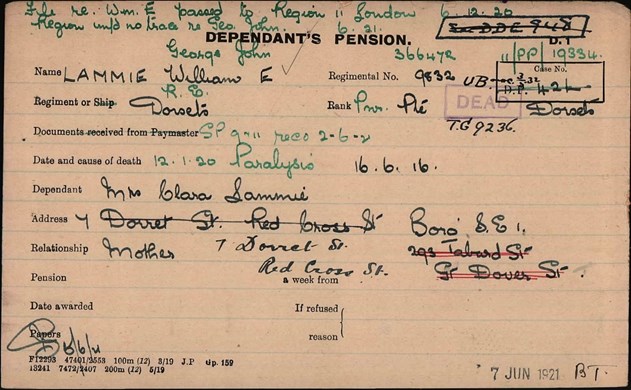 File re. Wm. E passed to Region 11 London 6.12.20
Region 11 no trace re Geo. John. 6.21.
DEPENDANT'S PENSION.
D.I
George John 366472 11/PP/19334.
Name LAMMIE William E Regimental No. 9832 UB.
Case No.
R.E.
Regiment or Ship Dorsets Rank Pnr. Pte DEAD Dorsets
Documents received from Paymaster SP 9-11 reco 2-6-2 T.G 9236.
Date and cause of death 12.1.20 Paralysis 16.6.16.
Dependant Mrs Clara Lammie
Address 7 Dorret St. Red Cross St Boro' S.E 1.
Relationship Mother 7 Dorret St. 293 Tabard St
Red Cross St. Gt Dover St.
Pension a week from
Date awarded If refused
reason
Papers
F12293 47401/2553 100m (12) 3/19 J.P Gp. 159
13241 7472/2407 200m (12) 5/19
7 JUN 1921 BT.